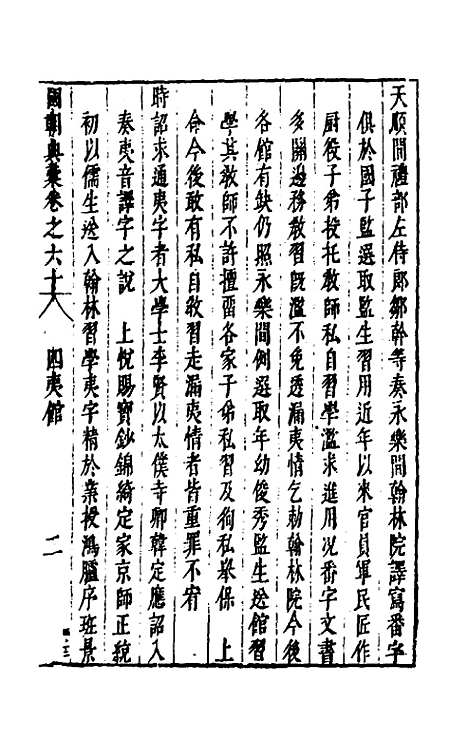 天順間禮部左侍郎鄒幹等奏永樂間翰林院譯寫番字
俱於國子監選取監生習用近年以來官員軍民匠作
厨役子弟投托教師私自習學濫求進用况番字文書
多關邊務教習既濫不免透漏夷情乞勅翰林院今後
各館有缺仍照永樂間例選取年幼俊秀監生送館習
學其教師不許擅留各家子弟私習及徇私舉保　上
命今後敢有私自教習走漏夷情者皆重罪不宥
時詔求通夷字者大學士李賢以太僕寺卿韓定應詔入
奏夷音譯字之說　上悅賜寶鈔錦綺定家京師正統
初以儒生送入翰林習學夷字精於業授鴻臚序班景
國朝典彙卷之六十八　四夷館　二